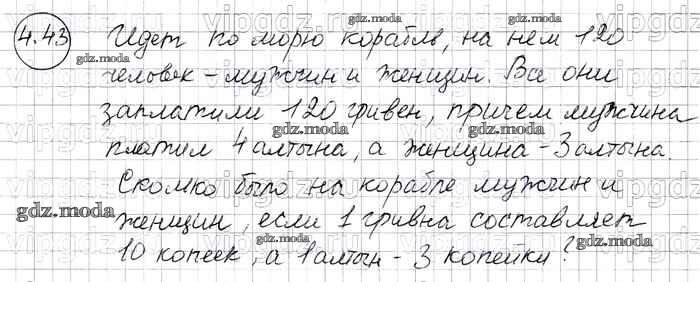 4.43 Идет по морю корабль, на нем 120
человек - мужчин и женщин. Все они
заплатили 120 гривен, причем мужчина
платил 4 алтына, а женщина - 3 алтына.
Сколко было на корабле мужчин и
женщин, если 1 гривна составляет
10 копеек, а 1 алтын - 3 копейки?
gdz.moda
gdz.moda
gdz.moda
gdz.moda
gdz.moda
gdz.moda
gdz.moda
gdz.moda
gdz.moda
gdz.moda